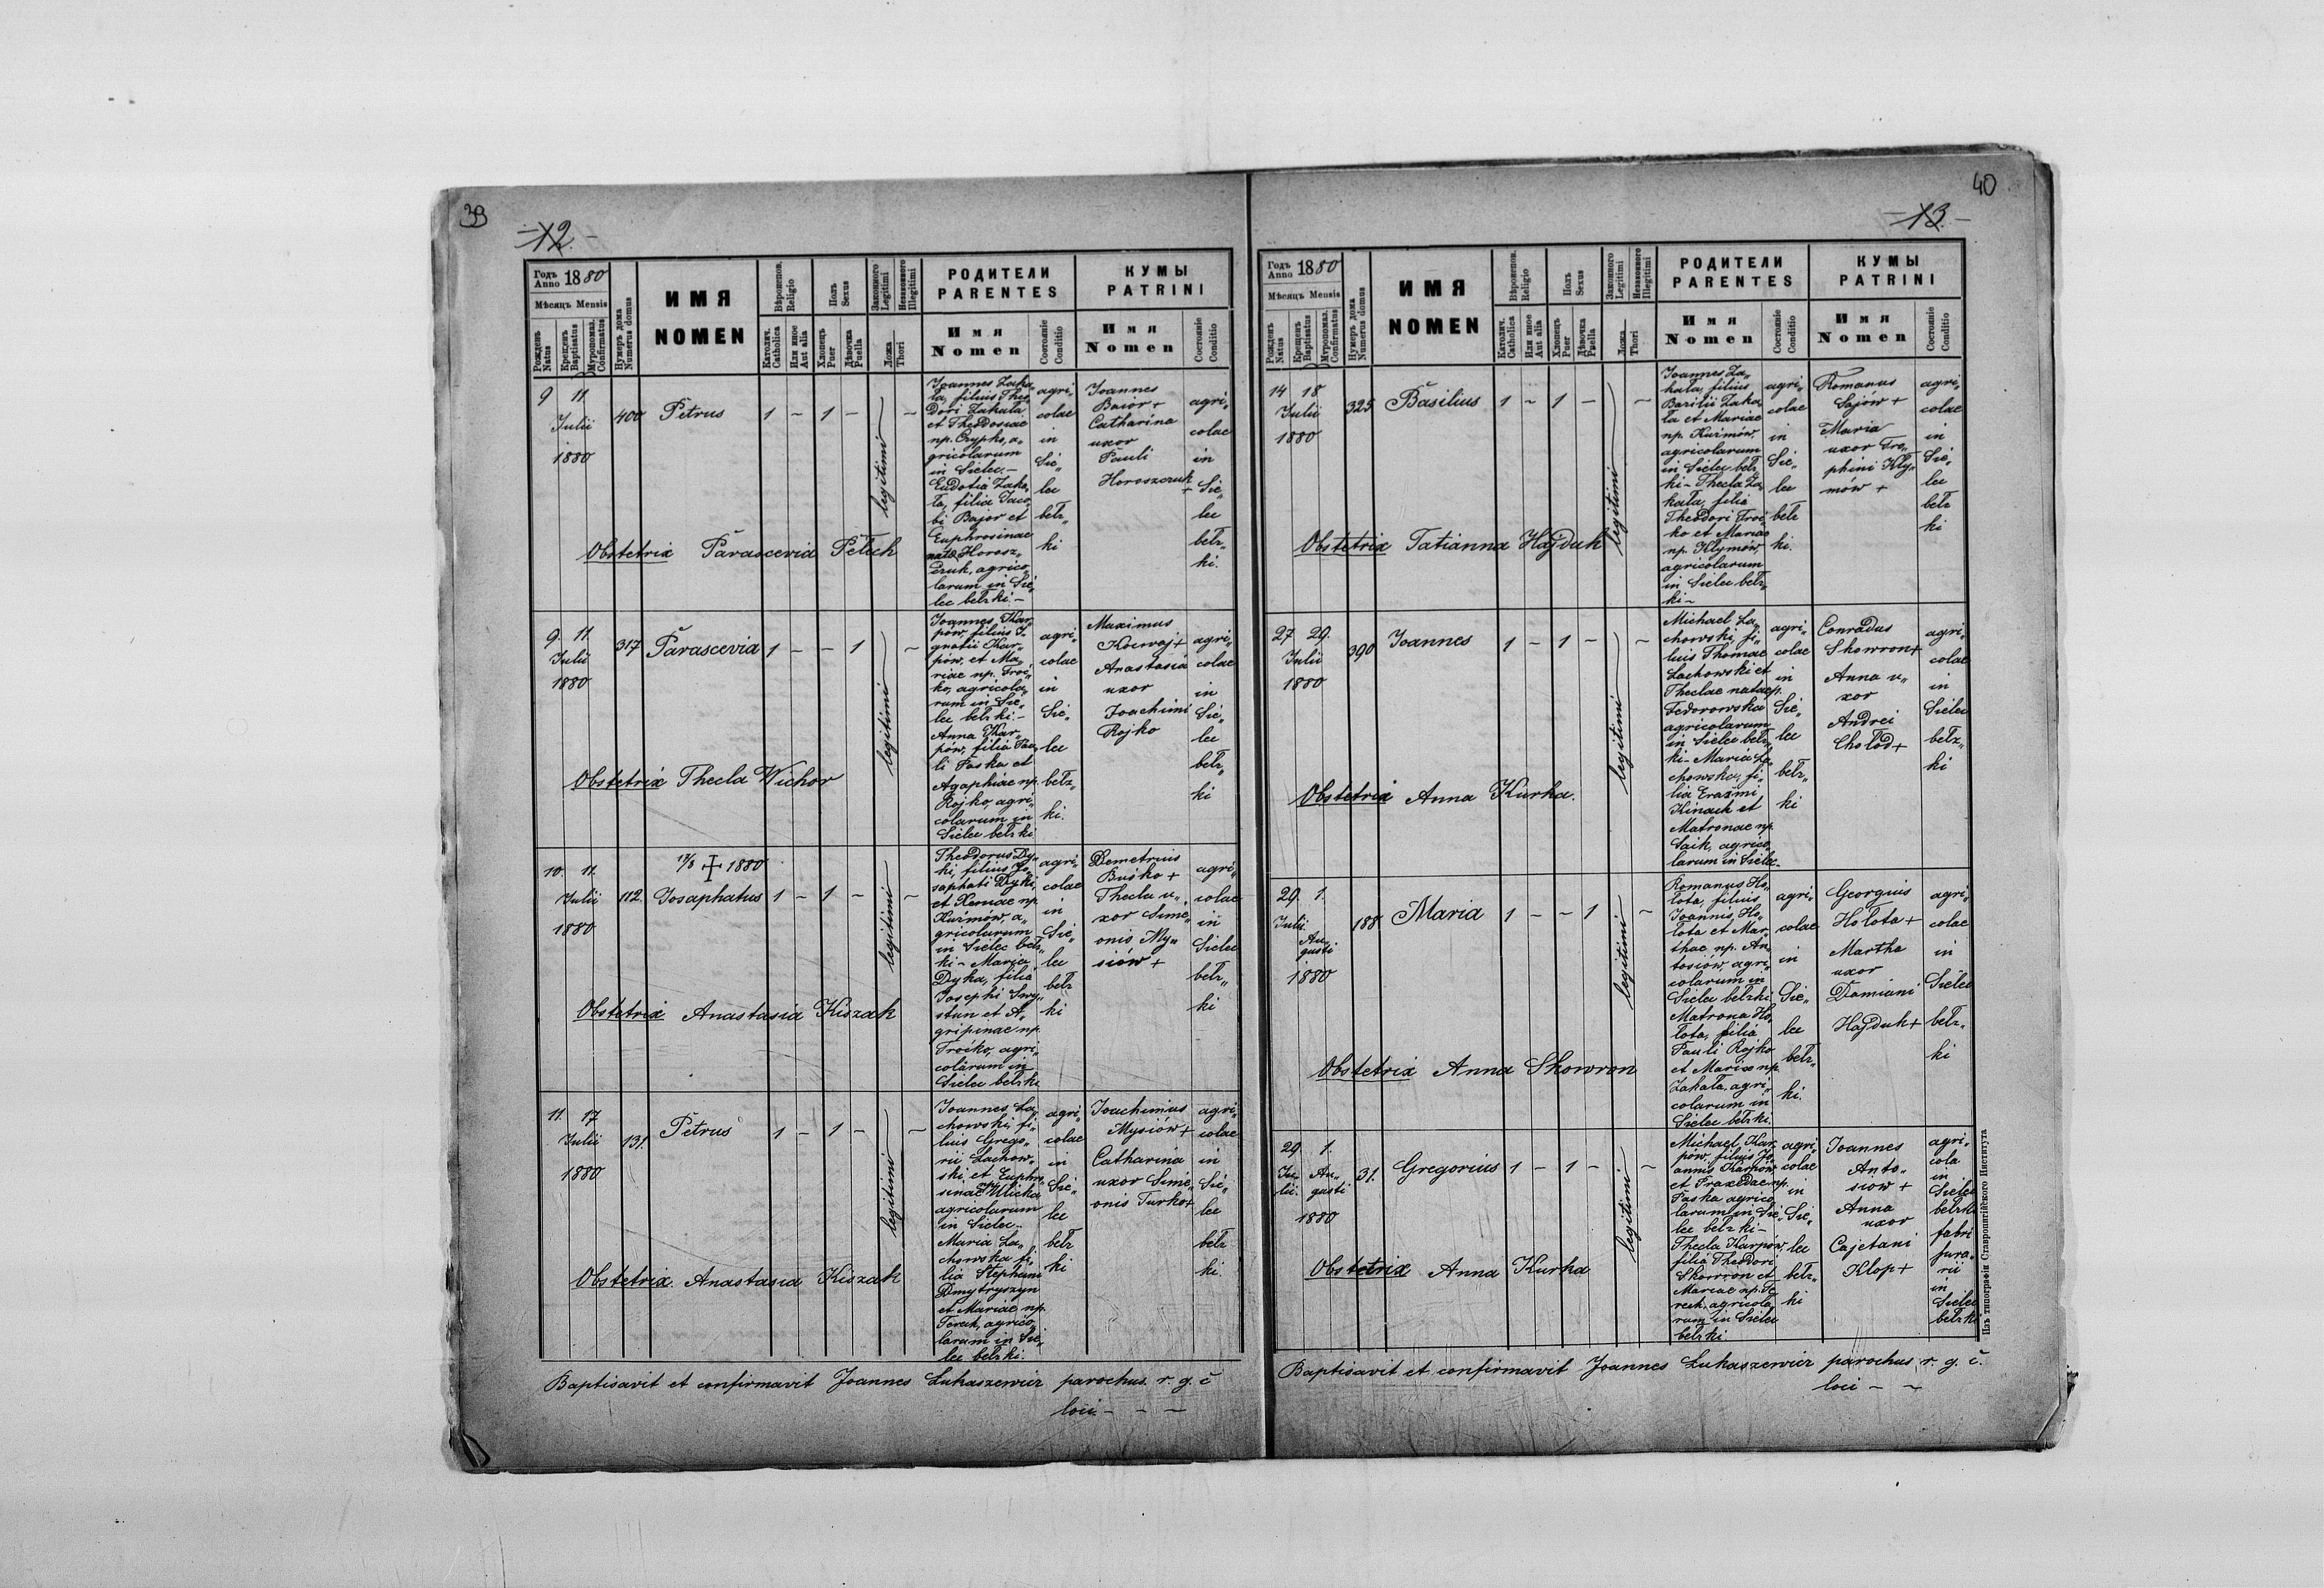 39
12.
Годъ Anno 1880
Мѣсяцъ Mensis
Рожденъ Natus
Крещенъ Baptisatus
Мѵропомаз. Confirmatus
Нумеръ дома Numerus domus
ИМЯ
NOMEN
Вѣроиспов. Religio
Католич. Catholica
Или иное Aut alia
Полъ Sexus
Хлопець Puer
Дѣвочка Puella
Законного Legitimi
Незаконного Illegitimi
Ложа Thori
РОДИТЕЛИ
PARENTES
Имя
Nomen
Состояніе Conditio
КУМЫ
PATRINI
Имя
Nomen
Состояніе Conditio
9 11
Julii
1880
400
Petrus
1 – 1 – –
legitimi
Joannes Zaka„
ła, filius Theo„
dori Zakała
et Theodosiae
np. Cryphs, a„
gricolarum
in Sielec.–
Eudotia Zaka„
ła, filia Jaco„
bi Bajor et
Euphrosinae
nata Horosz„
czuk, agrico„
larum in Sie„
lec bełzki.–
agri„
colae
in
Sie„
lec
bełz„
ki
Joannes
Baiór +
Catharina
uxor
Pauli
Horoszczuk
+
agri„
colae
in
Sie„
lec
bełz„
ki.
Obstetrix Parascevia Pełech
9. 11.
Julii
1880
317
Parascevia
1 – – 1 –
legitimi
Joannes Kar„
pów, filius I„
gnatii Kar„
pów, et Ma„
riae np. Troć„
ko, agricola„
rum in Sie„
lec bełzki.–
Anna Kar„
pów, filia Pau„
li Paska et
Agaphiae np.
Rojko, agri„
colarum in
Sielec bełzki
agri„
colae
in
Sie„
lec
bełz„
ki.
Maximus
Anastasia
uxor
Joachimi
Rojko
agri„
colae
in
Sie„
lec
bełz„
ki
Obstetrix Thecla Wichor
10. 11.
Julii
1880
112.
13/8 + 1880
Josaphatus
1 – 1 – –
legitimi
Theodorus Dy„
ki, filius Jo„
saphati Dyki
et Xeniae np.
Kuźmów, a„
gricolarum
in Sielec bełz„
ki – Maria
Dyka, filia
Josephi Swy„
stun et A„
gripinae np.
Troćko, agri„
colarum in
Sielec bełzki
agri„
colae
in
Sie„
lec
bełz
ki
Demetrius
Buśko +
Thecla u„
xor Sime„
onis My„
siów +
agri„
colae
in
Sielec
bełz„
ki
Obstetrix Anastasia Kiszak
11. 17
Julii
1880
131.
Petrus
1 – 1 – –
legitimi
Joannes La„
chowski, fi„
lius Grego„
rii Lachow„
ski et Euphro„
sinae np. Ulicka
agricolarum
in Sielec.–
Maria La„
chowska fi„
lia Stephani
Dmytryszyn
et Mariae np.
Tereck, agrico„
larum in Sie„
lec bełzki.
agri„
colae
in
Sie„
lec
bełz
ki
Joachimus
Mysiów +
Catharina
uxor Sime„
onis Turko +
agri„
colae
in
Sie„
lec
bełz
ki
Obstetrix. Anastasia Kiszak
Baptisavit et confirmavit Joannes Lukaszewicz parochus. r. g. c.
loci – – –
40
13.
Годъ Anno 1880
Мѣсяцъ Mensis
Рожденъ Natus
Крещенъ Baptisatus
Мѵропомаз. Confirmatus
Нумеръ дома Numerus domus
ИМЯ
NOMEN
Вѣроиспов. Religio
Католич. Catholica
Или иное Aut alia
Полъ Sexus
Хлопець Puer
Дѣвочка Puella
Законного Legitimi
Незаконного Illegitimi
Ложа Thori
РОДИТЕЛИ
PARENTES
Имя
Nomen
Состояніе Conditio
КУМЫ
PATRINI
Имя
Nomen
Состояніе Conditio
14 18
Julii
1880
325
Basilius
1 – 1 – –
legitimi
Joannes Za„
kała, filius
Basilii Zaka„
ła et Mariae
np. Kuźmów,
agricolarum
in Sielec bełz„
ki – Thecla Za„
kała, filia
Theodori Troć„
ko et Mariae
np. Klymów,
agricolarum
in Sielec bełz„
ki –
agri„
colae
in
Sie„
lec
bełz
ki.
Romanus
Sajów +
Maria
uxor Tro„
phini Kly„
mów +
agri„
colae
in
Sie„
lec
bełz
ki
Obstetrix Tatianna Hajduk
27 29.
Julii
1880
390
Joannes
1 – 1 – –
legitimi
Michael La„
chowski, fi„
lius Thomae
Lachowski et
Theclae nata
Fedorowska
agricolarum
in Sielec bełz„
ki – Maria La„
chowska, fi„
lia Erazmi
Kinach et
Matronae np.
Saik, agrico„
larum in Sielec
agri„
colae
in
Sie„
lec
bełz„
ki
Conradus
Skowron +
Anna u„
xor
Andrei
Chołod +
agri„
colae
in
Sielec
bełz„
ki
Obstetrix Anna Kurka.
29. 1.
Julii. Au„
gusti
1880
188.
Maria
1 – – 1 –
legitimi
Romanus Ho„
łota, filius
Joannis, Ho„
łota et Mar„
thae np. An„
tosiów, agri„
colarum in
Sielec bełzki
Matrona Ho„
łota, filia
Pauli Rojko
et Mariae np.
Zakała, agri„
colarum in
Sielec bełzki.
agri„
colae
in
Sie„
lec
bełz„
ki.
Georgius
Hołota +
Martha
uxor
Damiani
Hajduk +
agri„
colae
in
Sielec
bełz„
ki
Obstetrix Anna Skowron
29. 1.
Ju„ Au„
lii. gusti
1880
31.
Gregorius
1 – 1 – –
legitimi
Michael, Kar„
pów, filius Jo„
annis Karpów
et Praxedae np.
Paska agrico„
larum in Sie„
lec bełzki –
Thecla Karpów,
filia Theodori
Skowron et
Mariae np. Te„
reck, agricola„
rum in Sielec
bełzki.
agri„
colae
in
Sie„
lec
bełz„
ki
Joannes
Anto„
siow +
Anna
uxor
Cajetani
Klop +
agri„
cola
in
Sielec
bełzki
fabri
in
Sielec
bełzki
Obstetrix Anna Kurka
Baptisavit et confirmavit Joannes Lukaszewicz parochus r. g. c.
loci – –
Изъ типографіи Ставропигійского Института